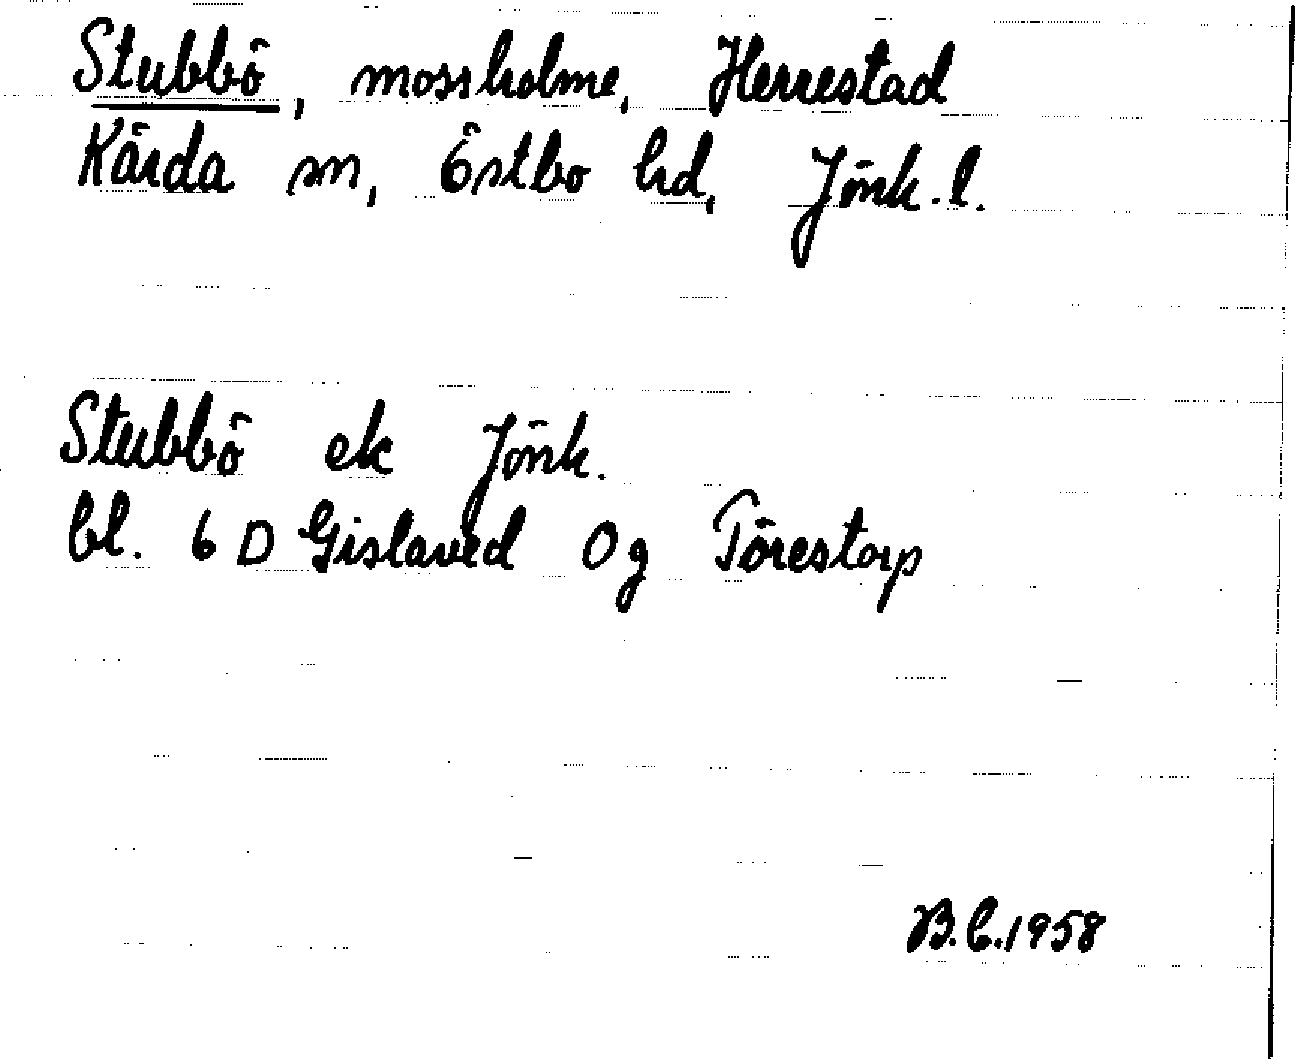 Stubbö, mossholme, Herrestad
Kärda sn, Östbo hd, Jönk.l.
Stubbö ek Jönk.
bl. 6 D Gislaved 0g Törestorp
B.C.1958